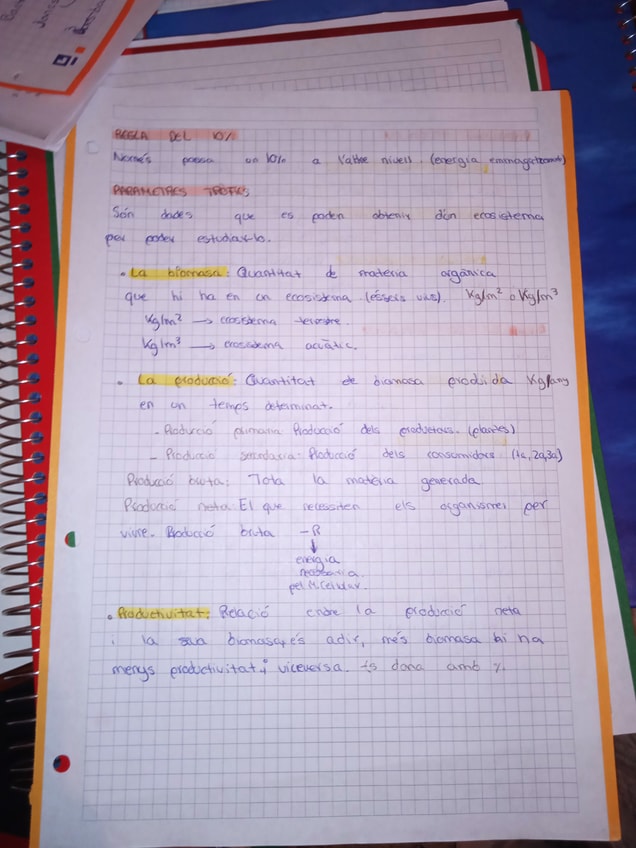 REGLA DEL 10%
Només passa un 10% a l'altre nivell. (energia emmagatzemada)
PARÀMETRES TRÒFICS
Són dades que es poden obtenir d'un ecosistema
per poder estudiar-lo.
• La biomasa: Quantitat de matèria orgànica
que hi ha en un ecosistema (éssers vius). Kg/m² o Kg/m³
Kg/m² → ecosistema terrestre.
Kg/m³ → ecosistema acuàtic.
• La producció: Quantitat de biomasa produida Kg/any
en un temps determinat.
- Producció primaria: Producció dels productors. (plantes)
- Producció secundaria: Producció dels consumidors (1a, 2a, 3a)
Producció bruta: Tota la matèria generada
Producció neta: El que necessiten els organismes per
viure. Producció bruta - R
↓
energia
necessaria
pel M. Celular.
• Productivitat: Relació entre la producció neta
i la sua biomasa, és a dir, més biomasa hi ha
menys productivitat i viceversa. Es dona amb %